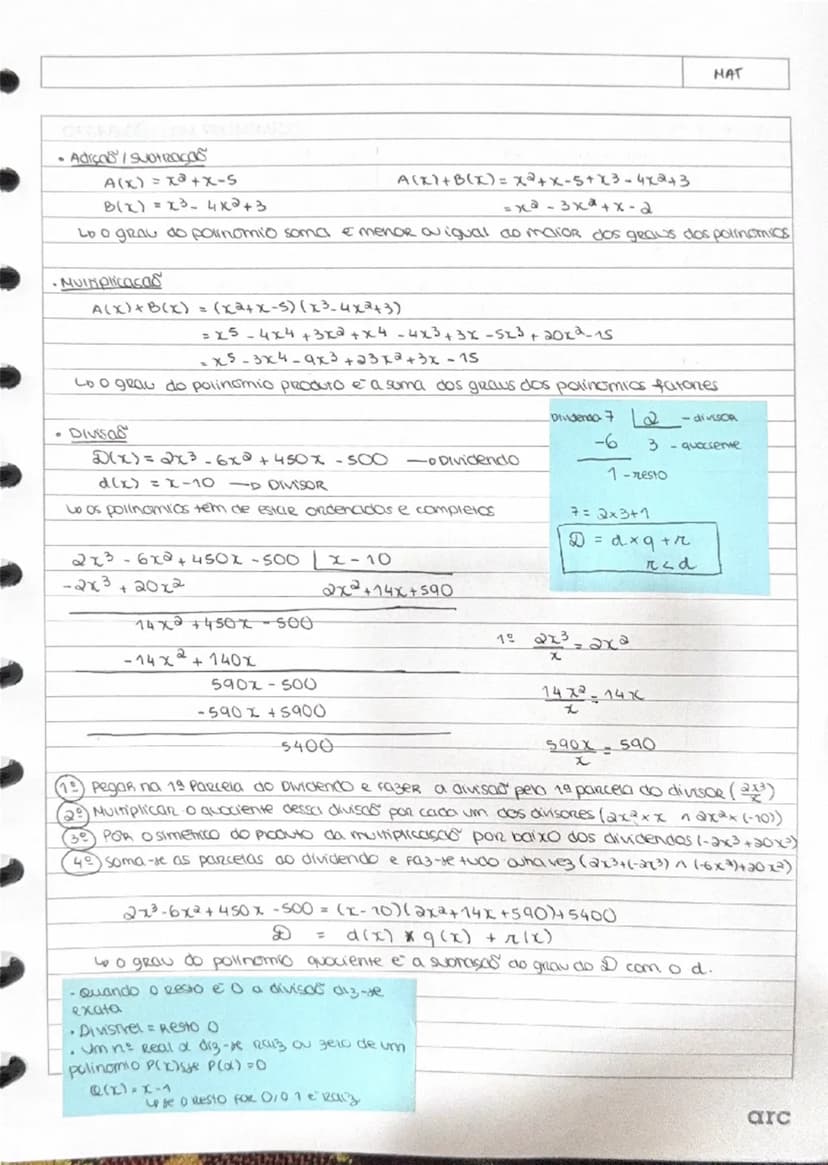 MAT
• Adição / subtração
A(x) = x² + x - 5
A(x) + B(x) = x² + x - 5 + x³ - 4x² + 3
B(x) = x³ - 4x² + 3
= x³ - 3x² + x - 2
↳ o grau do polinomio soma é menor ou igual ao maior dos graus dos polinomios
• Multiplicação
A(x) + B(x) = (x² + x - 5) (x³ - 4x² + 3)
= x⁵ - 4x⁴ + 3x² + x⁴ - 4x³ + 3x - 5x³ + 20x² - 15
= x⁵ - 3x⁴ - 9x³ + 23x² + 3x - 15
↳ o grau do polinomio produto é a soma dos graus dos polinomios fatores
• Divisão
D(x) = 2x³ - 6x² + 450x - 500 → Dividendo
d(x) = x - 10 → DIVISOR
↳ os polinomios têm de estar ordenados e completos
Dividendo 7 | 2 - divisor
-6 3 - quociente
1 - resto
7 = 2 x 3 + 1
D = d x q + r
r < d
2x³ - 6x² + 450x - 500 | x - 10
-2x³ + 20x² 2x² + 14x + 590
14x² + 450x - 500
-14x² + 140x
590x - 500
-590x + 5900
5400
1º 2x³/x = 2x²
14x²/x = 14x
590x/x = 590
1º) Pegar na 1ª parcela do Dividendo e fazer a divisão pela 1ª parcela do divisor (2x³/x)
2º) Multiplicar o quociente dessa divisão por cada um dos divisores (2x² × x ∧ 2x² × (-10))
3º) Pôr o simétrico do produto da multiplicação por baixo dos dividendos (-2x³ + 20x²)
4º) soma-se as parcelas ao dividendo e faz-se tudo outra vez (2x³+(-2x³) ∧ (-6x²)+20x²)
2x³ - 6x² + 450x - 500 = (x - 10) (2x² + 14x + 590) + 5400
D = d(x) × q(x) + r(x)
↳ o grau do polinomio quociente é a subtração do grau do D com o d.
- Quando o resto é 0 a divisão diz-se
exata
• Divisível = Resto 0
• Um nº Real α diz-se raiz ou zero de um
polinomio P(x) sse P(α) = 0
Q(x) = x - 1
↳ se o resto for 0, o 1 é raiz
arc